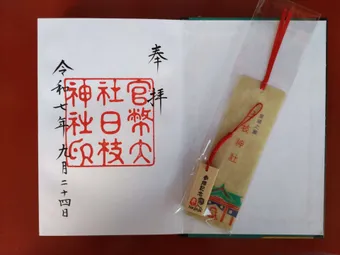 奉拝
官幣大
社日枝
神社印
令和七年九月二十四日
神社